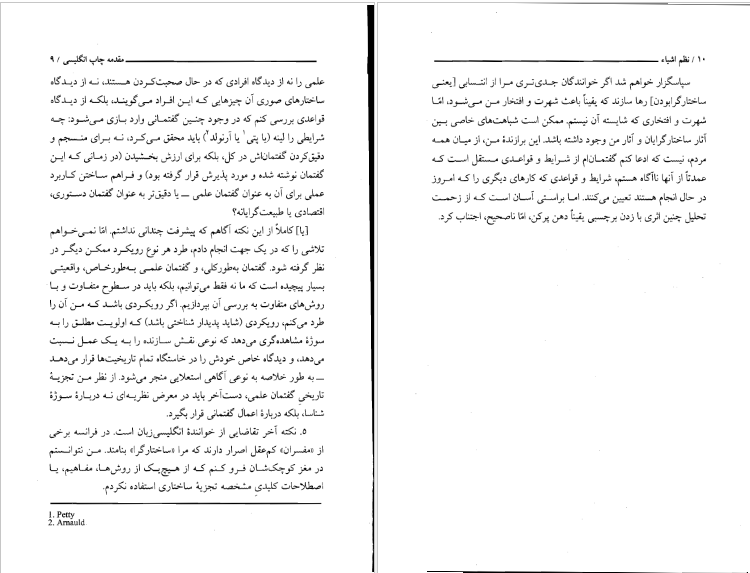 مقدمه چاپ انگلیسی / ۹
علمی را نه از دیدگاه افرادی که در حال صحبت‌کردن هستند، نه از دیدگاه
ساختارهای صوری آن چیزهایی که این افراد می‌گویند، بلکه از دیدگاه
قواعدی بررسی کنم که در وجود چنین گفتمانی وارد بازی می‌شود: چه
شرایطی را لینه (یا پتی۱ یا آرنولد۲) باید محقق می‌کرد، نه برای منسجم و
دقیق‌کردن گفتمان‌اش در کل، بلکه برای ارزش بخشیدن (در زمانی که این
گفتمان نوشته شده و مورد پذیرش قرار گرفته بود) و فراهم ساختن کاربرد
عملی برای آن به عنوان گفتمان علمی ــ یا دقیق‌تر به عنوان گفتمان دستوری،
اقتصادی یا طبیعت‌گرایانه؟
[یا] کاملاً از این نکته آگاهم که پیشرفت چندانی نداشتم. امّا نمی‌خواهم
تلاشی را که در یک جهت انجام دادم، طرد هر نوع رویکرد ممکن دیگر در
نظر گرفته شود. گفتمان به‌طورکلی، و گفتمان علمی به‌طورخاص، واقعیتی
بسیار پیچیده است که ما نه فقط می‌توانیم، بلکه باید در سطوح متفاوت و با
روش‌های متفاوت به بررسی آن بپردازیم. اگر رویکردی باشد که من آن را
طرد می‌کنم، رویکردی (شاید پدیدار شناختی باشد) که اولویت مطلق را به
سوژهٔ مشاهده‌گری می‌دهد که نوعی نقش سازنده را به یک عمل نسبت
می‌دهد، و دیدگاه خاص خودش را در خاستگاه تمام تاریخیت‌ها قرار می‌دهد
ــ به طور خلاصه به نوعی آگاهی استعلایی منجر می‌شود. از نظر من تجزیهٔ
تاریخیِ گفتمان علمی، دست‌آخر باید در معرض نظریه‌ای نه دربارهٔ سوژهٔ
شناسا، بلکه دربارهٔ اعمال گفتمانی قرار بگیرد.
۵. نکته آخر تقاضایی از خوانندهٔ انگلیسی‌زبان است. در فرانسه برخی
از «مفسران» کم‌عقل اصرار دارند که مرا «ساختارگرا» بنامند. من نتوانستم
در مغز کوچک‌شان فرو کنم که از هیچ‌یک از روش‌ها، مفاهیم، یا
اصطلاحات کلیدیِ مشخصه تجزیهٔ ساختاری استفاده نکردم.
1. Petty
2. Arnauld
۱۰ / نظم اشیاء
سپاسگزار خواهم شد اگر خوانندگان جدی‌تری مرا از انتسابی [یعنی
ساختارگرابودن] رها سازند که یقیناً باعث شهرت و افتخار من می‌شود، امّا
شهرت و افتخاری که شایسته آن نیستم. ممکن است شباهت‌های خاصی بین
آثار ساختارگرایان و آثار من وجود داشته باشد. این برازندهٔ من، از میان همه
مردم، نیست که ادعا کنم گفتمان‌ام از شرایط و قواعدی مستقل است که
عمدتاً از آنها ناآگاه هستم، شرایط و قواعدی که کارهای دیگری را که امروز
در حال انجام هستند تعیین می‌کنند. اما براستی آسان است که از زحمت
تحلیل چنین اثری با زدن برچسبی یقیناً دهن پرکن، امّا ناصحیح، اجتناب کرد.